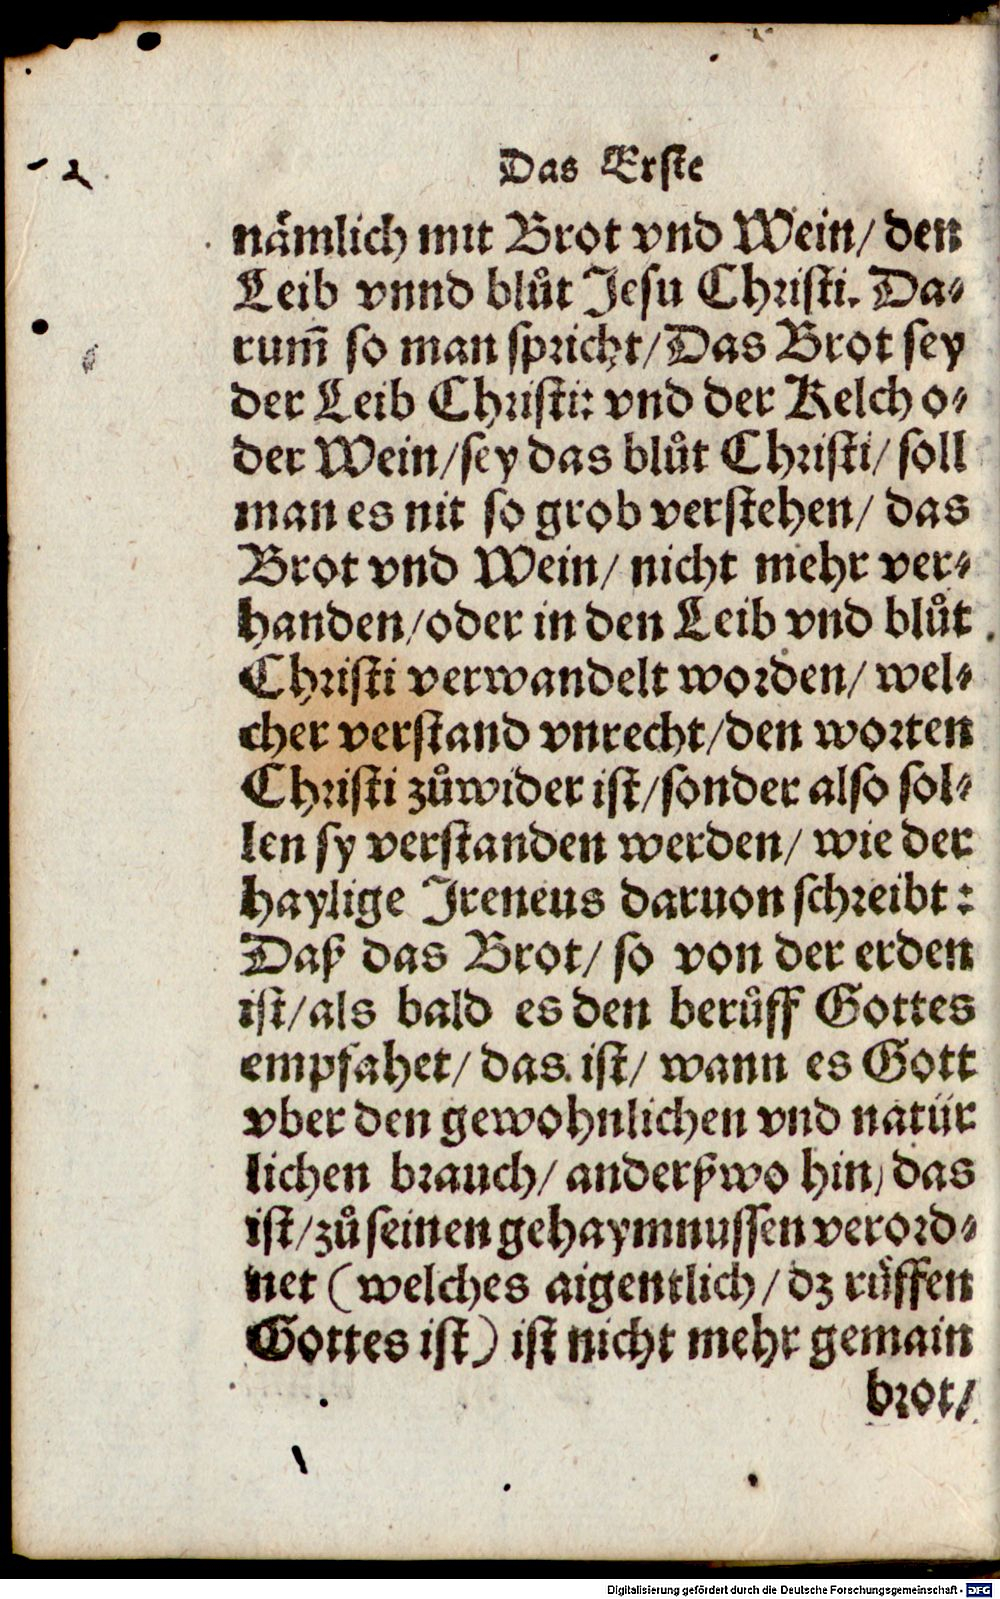 Das Erste
nämlich mit Brot vnd Wein/ den
Leib vnnd blůt Jesu Christi. Da⸗
rum̄ so man spricht/ Das Brot sey
der Leib Christi: vnd der Kelch o⸗
der Wein/ sey das blůt Christi/ soll
man es nit so grob verstehen/ das
Brot vnd Wein/ nicht mehr ver⸗
handen/ oder in den Leib vnd blůt
Christi verwandelt worden/ wel⸗
cher verstand vnrecht/ den worten
Christi zůwider ist/ sonder also sol⸗
len sy verstanden werden/ wie der
haylige Jreneus daruon schreibt:
Daß das Brot/ so von der erden
ist/ als bald es den berůff Gottes
empfahet/ das ist/ wann es Gott
vber den gewohnlichen vnd natür
lichen brauch/ anderßwo hin/ das
ist/ zů seinen gehaymnussen verord⸗
net (welches aigentlich/ dz růffen
Gottes ist) ist nicht mehr gemain
brot/
Digitalisierung gefördert durch die Deutsche Forschungsgemeinschaft - DFG